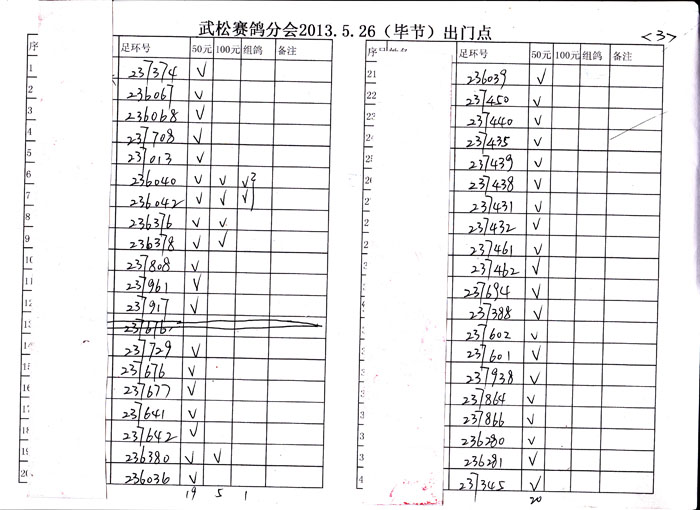 武松赛鸽分会2013.5.26（毕节）出门点
<3>
序 足环号 50元 100元 组鸽 备注
1 237374 √
2 236067 √
3 236068 √
4 237708 √
5 237013 √
6 236040 √ √ √2
7 236042 √ √ √
8 236376 √ √
9 236378 √ √
10 237808 √
11 237961 √
12 237917 √
13 237676
14 237729 √
15 237676 √
16 237677 √
17 237641 √
18 237642 √
19 236380 √ √
20 236036 √
19 5 1
序号 姓名 足环号 50元 100元 组鸽 备注
21 236039 √
22 237450 √
23 237440 √
24 237435 √
25 237439 √
26 237438 √
2 237431 √
2 237432 √
2 237461 √
3 237462 √
3 237694 √
237388 √
3 237602 √
3 237601 √
3 237938 √
3 237864 √
3 237866 √
3 236280 √
3 236281 √
4 237345 √
20